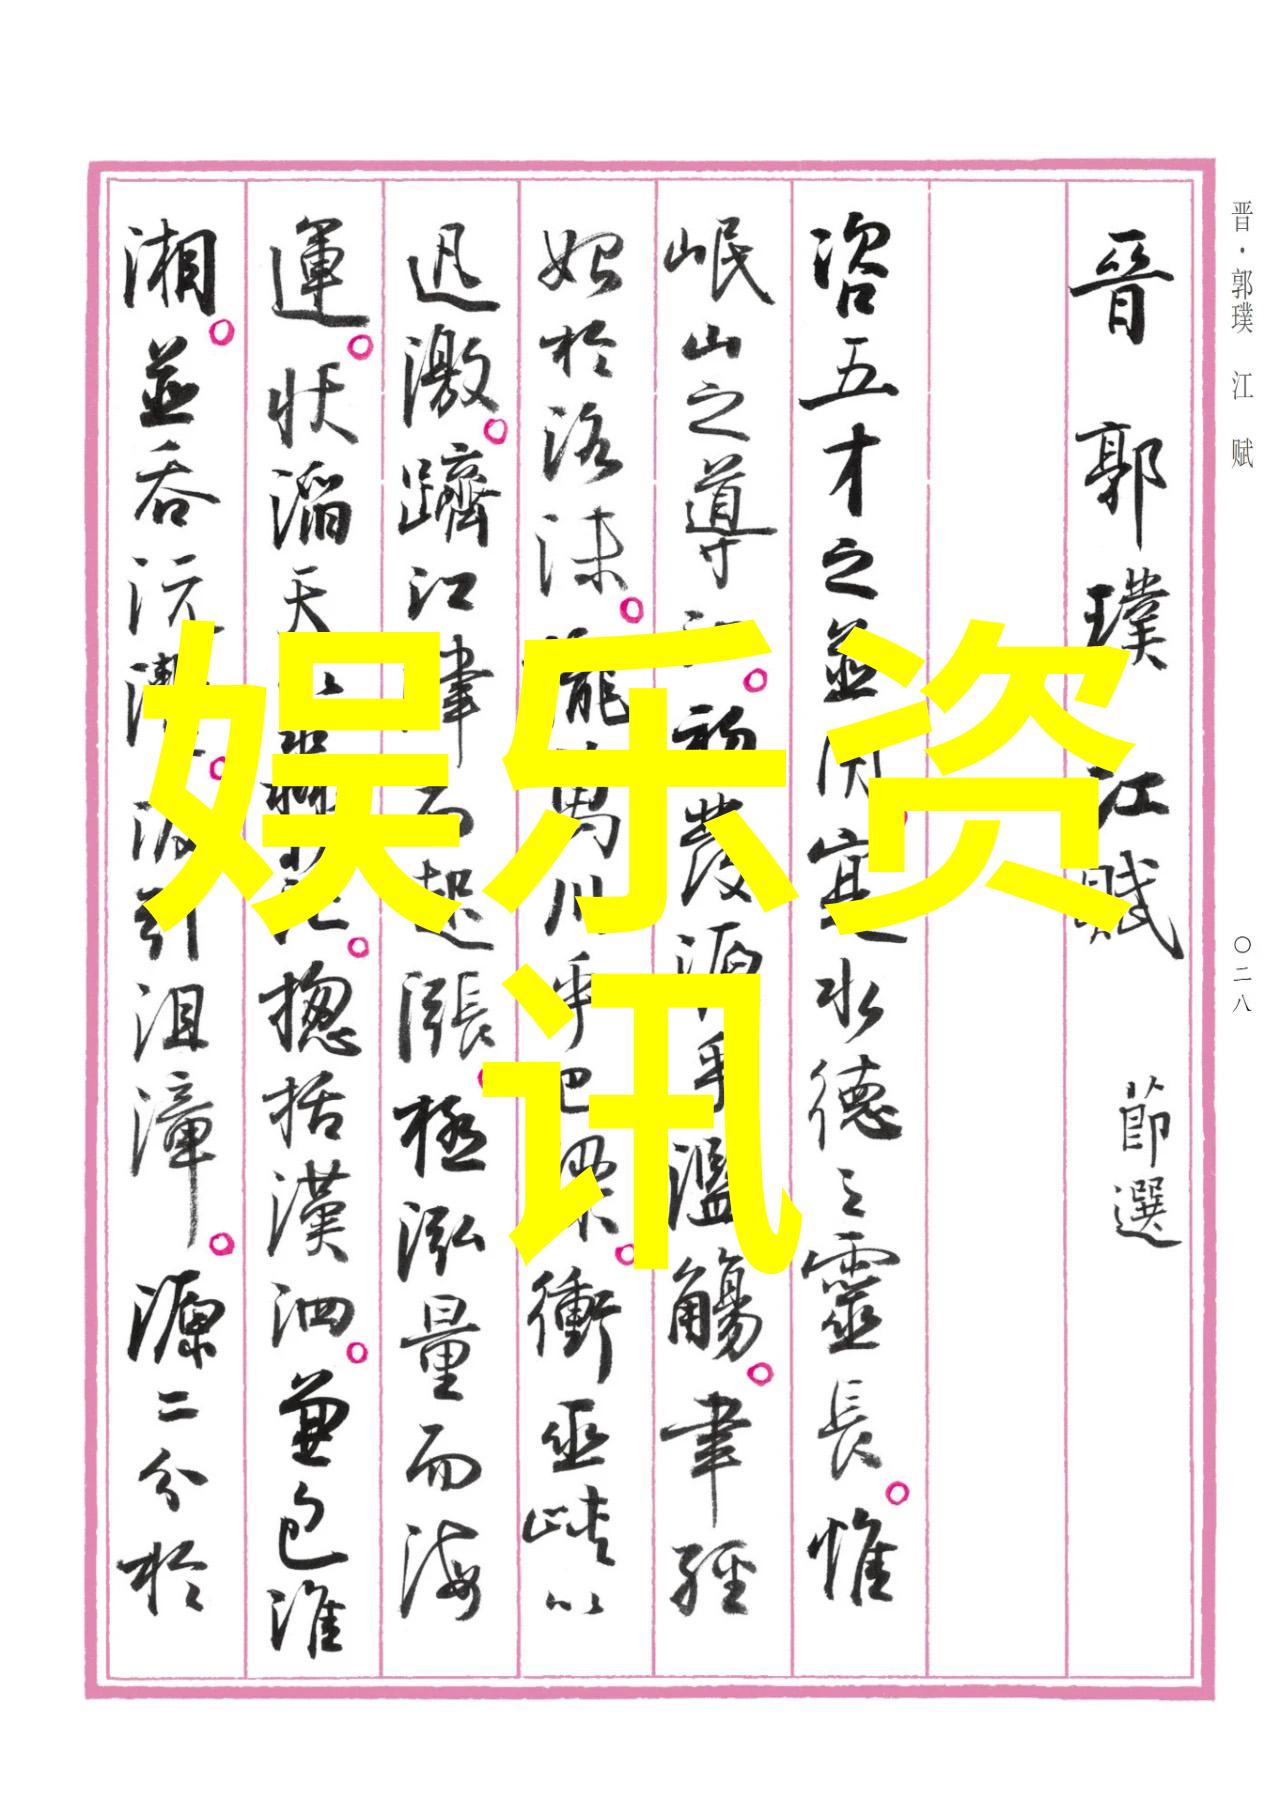 晋·郭璞 江 赋
〇二八
晉 郭璞 江賦 節選
咨五才之並用。寔水德之靈長。惟
岷山之導江。初發源乎濫觴。聿經
始於洛沬。攏萬川乎巴梁。衝巫峽以
迅激。躋江津而起漲。極泓量而海
運。狀滔天以淼茫。摠括漢泗。兼包淮
湘。並吞沅澧。汲引沮漳。源二分於
娱乐资
讯